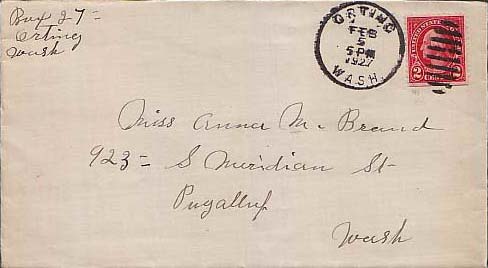 Box 27 =
Orting
Wash
ORTING
FEB
5
5 PM
1927
WASH.
UNITED STATES
2
Miss Anna M. Brand
923 = S Meridian St
Puyallup
Wash